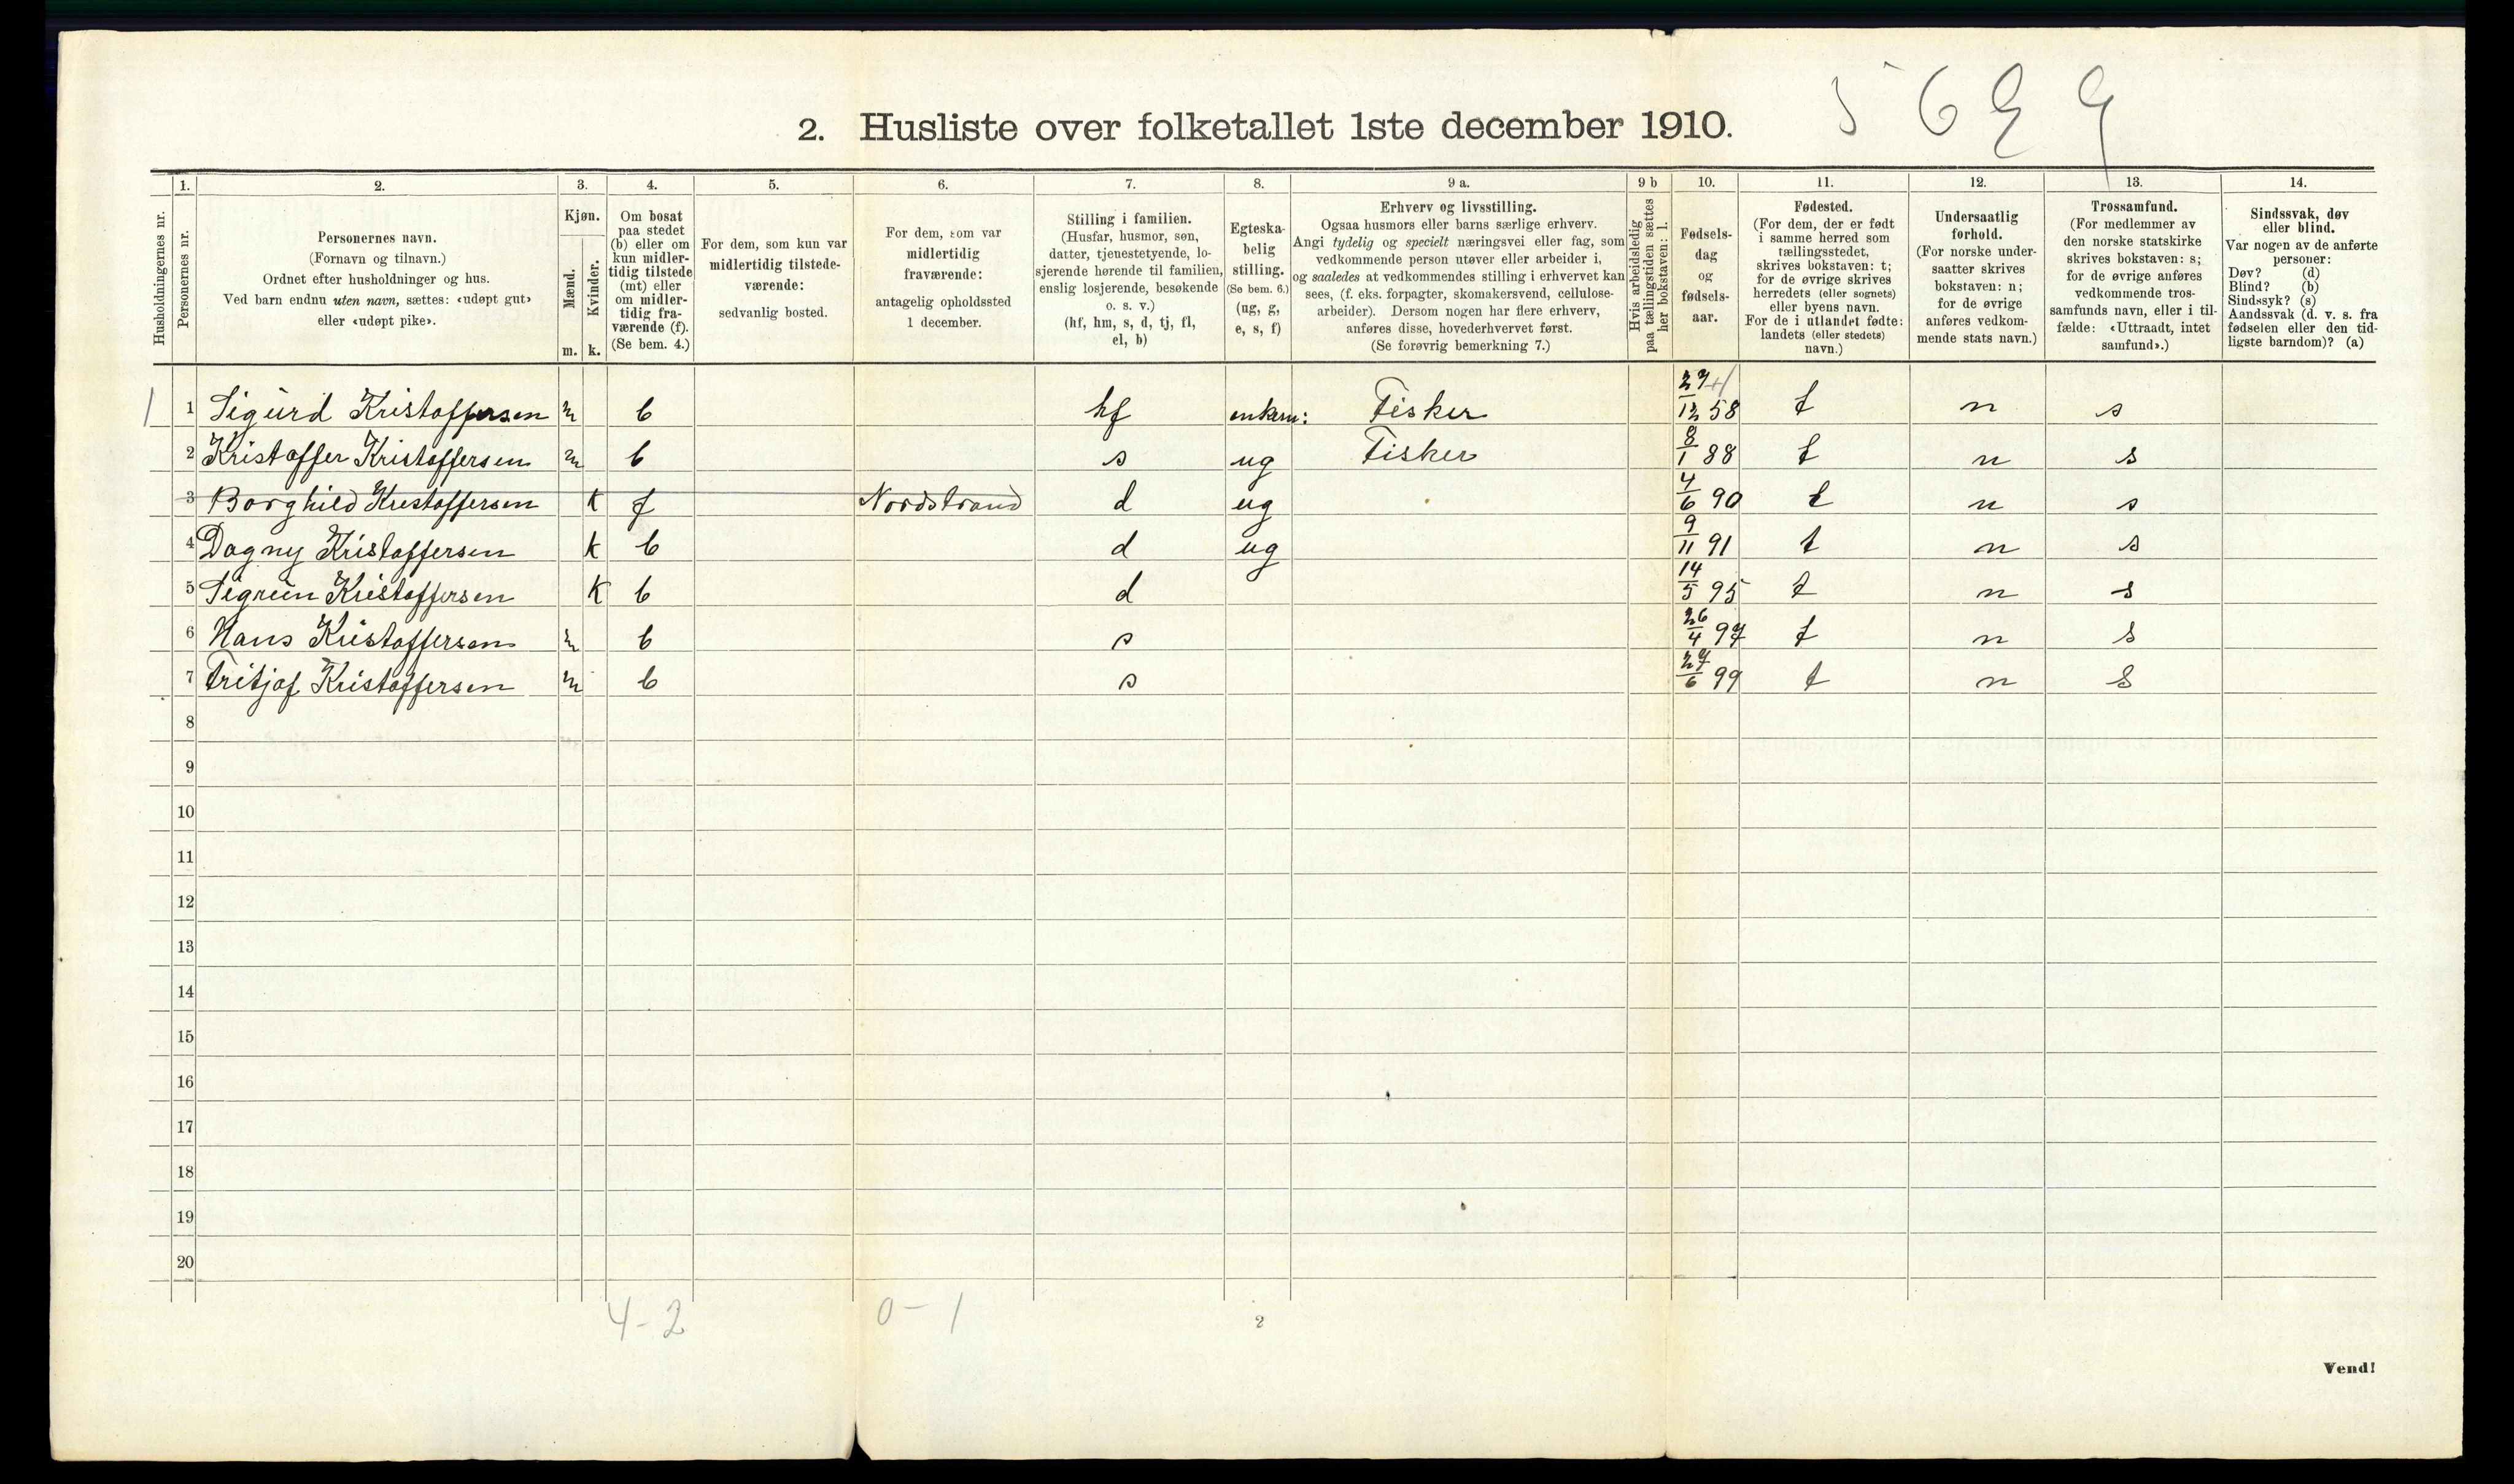 5 6 2 9
2. Husliste over folketallet 1ste december 1910.
Husholdningernes nr.
1.
Personernes nr.
2.
Personernes navn.
(Fornavn og tilnavn.)
Ordnet efter husholdninger og hus.
Ved barn endnu uten navn, sættes: «udøpt gut»
eller «udøpt pike».
3.
Kjøn.
Mænd.
m.
Kvinder.
k.
4.
Om bosat
paa stedet
(b) eller om
kun midler-
tidig tilstede
(mt) eller
om midler-
tidig fra-
værende (f).
(Se bem. 4.)
5.
For dem, som kun var
midlertidig tilstede-
værende:
sedvanlig bosted.
6.
For dem, som var
midlertidig
fraværende:
antagelig opholdssted
1 december.
7.
Stilling i familien.
(Husfar, husmor, søn,
datter, tjenestetyende, lo-
sjerende hørende til familien,
enslig losjerende, besøkende
o. s. v.)
(hf, hm, s, d, tj, fl,
el, b)
8.
Egteska-
belig
stilling.
(Se bem. 6.)
(ug, g,
e, s, f)
9 a.
Erhverv og livsstilling.
Ogsaa husmors eller barns særlige erhverv.
Angi tydelig og specielt næringsvei eller fag, som
vedkommende person utøver eller arbeider i,
og saaledes at vedkommendes stilling i erhvervet kan
sees, (f. eks. forpagter, skomakersvend, cellulose-
arbeider). Dersom nogen har flere erhverv,
anføres disse, hovederhvervet først.
(Se forøvrig bemerkning 7.)
9 b
Hvis arbeidsledig
paa tællingstiden sættes
her bokstaven: l.
10.
Fødsels-
dag
og
fødsels-
aar.
11.
Fødested.
(For dem, der er født
i samme herred som
tællingsstedet,
skrives bokstaven: t;
for de øvrige skrives
herredets (eller sognets)
eller byens navn.
For de i utlandet fødte:
landets (eller stedets)
navn.)
12.
Undersaatlig
forhold.
(For norske under-
saatter skrives
bokstaven: n;
for de øvrige
anføres vedkom-
mende stats navn.)
13.
Trossamfund.
(For medlemmer av
den norske statskirke
skrives bokstaven: s;
for de øvrige anføres
vedkommende tros-
samfunds navn, eller i til-
fælde: «Uttraadt, intet
samfund».)
14.
Sindssvak, døv
eller blind.
Var nogen av de anførte
personer:
Døv? (d)
Blind? (b)
Sindssyk? (s)
Aandssvak (d. v. s. fra
fødselen eller den tid-
ligste barndom)? (a)
1 1 Sigurd Kristoffersen m b hf enkem: Fisker 27/12 58 t n s
2 Kristoffer Kristoffersen m b s ug Fisker 8/1 88 t n s
3 Borghild Kristoffersen k f Nordstrand d ug 4/6 90 t n s
4 Dagny Kristoffersen k b d ug 9/11 91 t n s
5 Sigrun Kristoffersen k b d 14/5 95 t n s
6 Hans Kristoffersen m b s 26/4 97 t n s
7 Fritjof Kristoffersen m b s 27/6 99 t n s
8
9
10
11
12
13
14
15
16
17
18
19
20
4-2 0-1
2
Vend!